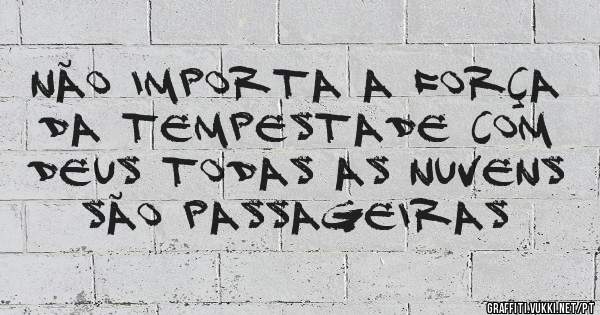 NÃO IMPORTA A FORÇA
DA TEMPESTADE COM
DEUS TODAS AS NUVENS
SÃO PASSAGEIRAS
GRAFFITI.VUKKI.NET/PT